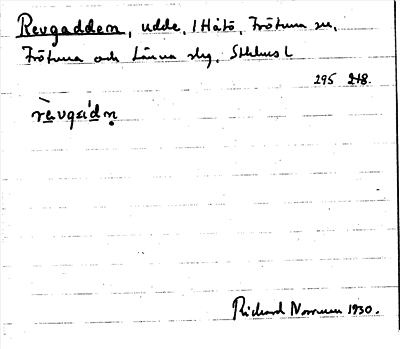 Revgadden, udde, 1 Håtö, Frötuna sn,
Frötuna och Länna slg, Sthlms l
295 218.
rè̱vgad́ṇ
Richard Norrman 1930.